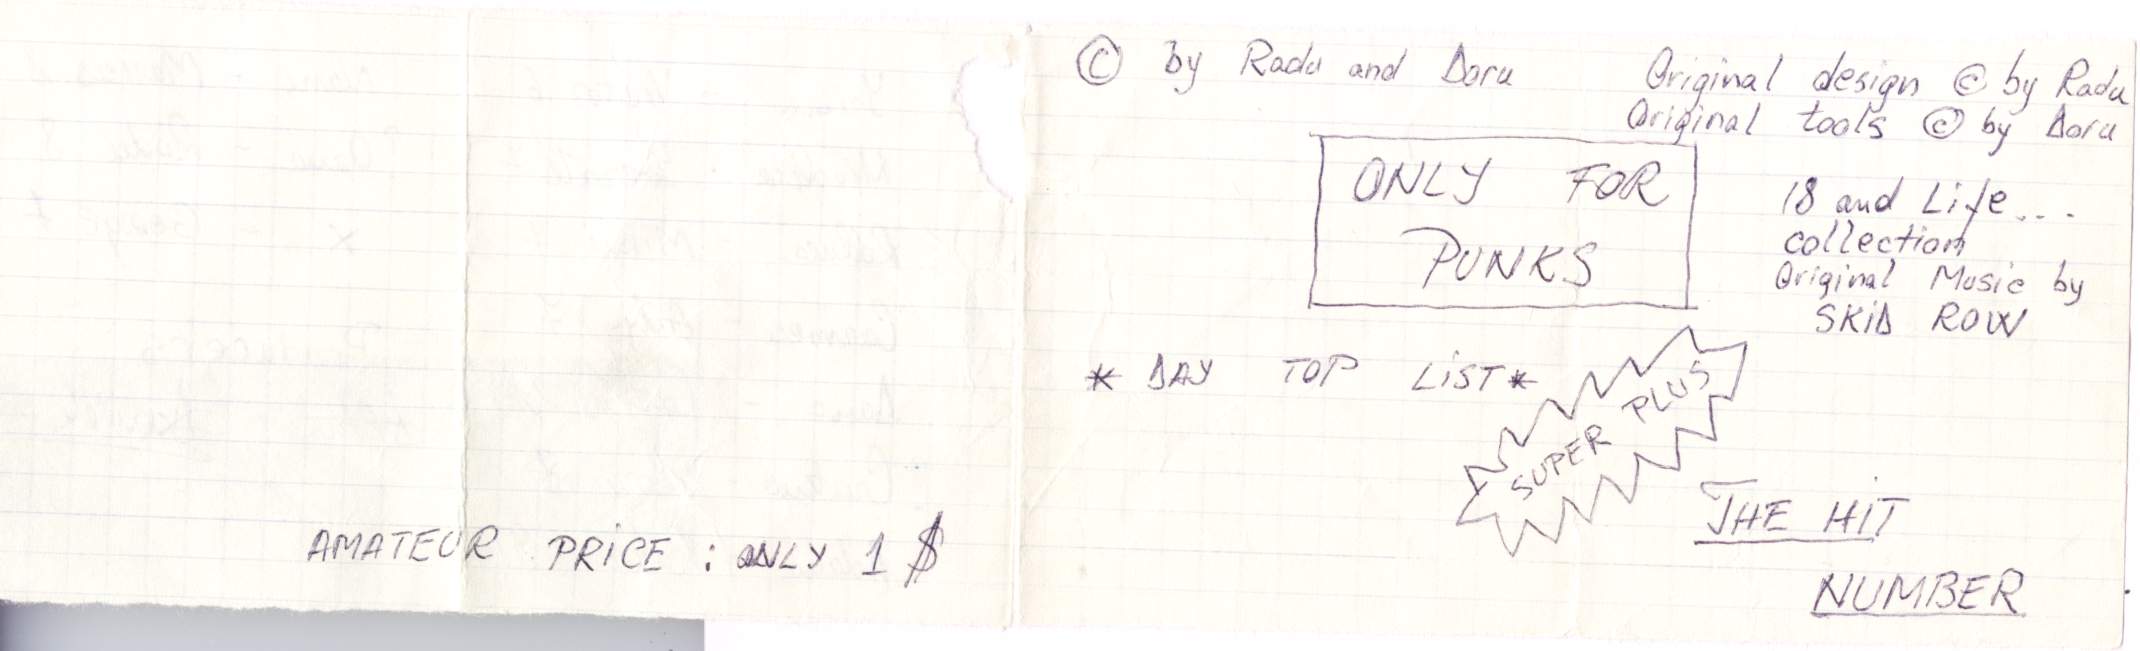 © by Radu and Doru
Original design © by Radu
Original tools © by Doru
ONLY FOR
PUNKS
18 and Life...
collection
Original Music by
SKID ROW
* DAY TOP LIST *
SUPER PLUS
THE HIT
NUMBER
AMATEUR PRICE : ONLY 1 $